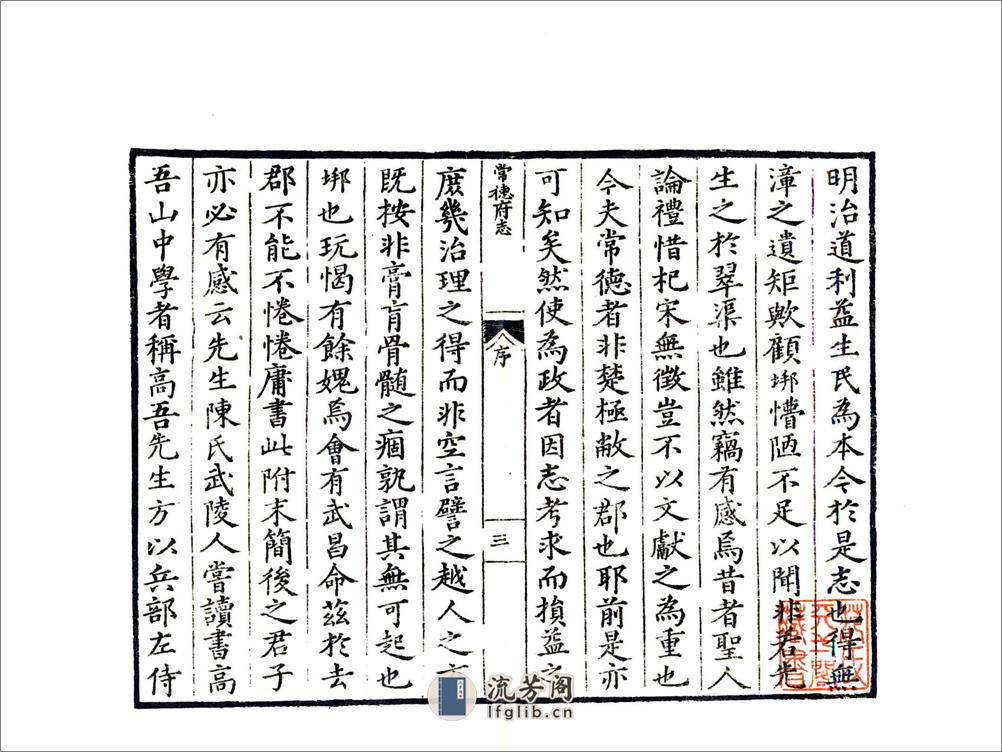 明治道利益生民為本今於是志也得無
漳之遺矩歟顧埛懵陋不足以聞非若先
生之於翠渠也雖然竊有感焉昔者聖人
論禮惜杞宋無徵豈不以文獻之為重也
今夫常德者非楚極敝之郡也耶前是亦
可知矣然使為政者因志考求而損益之
常德府志
序
三
庶幾治理之得而非空言譬之越人之方
既按非膏肓骨髓之痼孰謂其無可起也
埛也玩愒有餘媿焉會有武昌命茲於去
郡不能不惓惓庸書此附末簡後之君子
亦必有感云先生陳氏武陵人嘗讀書高
吾山中學者稱高吾先生方以兵部左侍
流芳阁
lfglib.cn